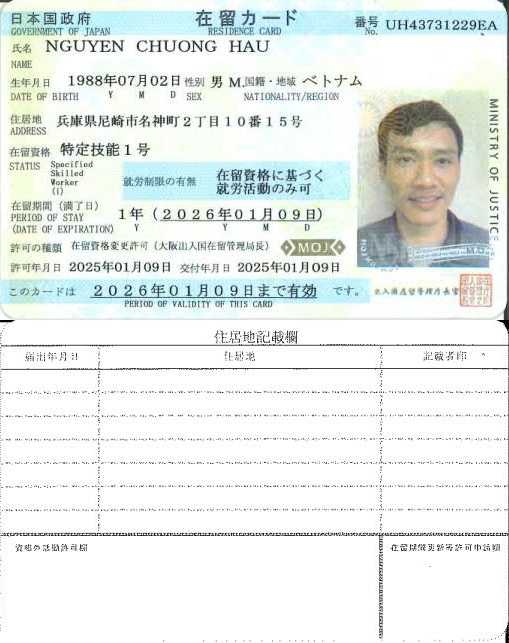 日本国政府 在留カード 番号 UH43731229EA
GOVERNMENT OF JAPAN RESIDENCE CARD No.
氏名 NGUYEN CHUONG HAU
NAME
生年月日 1988年07月02日 性別 男 M. 国籍・地域 ベトナム
DATE OF BIRTH Y M D SEX NATIONALITY/REGION
住居地 兵庫県尼崎市名神町2丁目10番15号
ADDRESS
在留資格 特定技能1号
STATUS Specified
Skilled
Worker
(i)
就労制限の有無 在留資格に基づく
就労活動のみ可
在留期間(満了日) 1年(2026年01月09日)
PERIOD OF STAY
(DATE OF EXPIRATION) Y M D
許可の種類 在留資格変更許可(大阪出入国在留管理局長) MOJ
許可年月日 2025年01月09日 交付年月日 2025年01月09日
このカードは 2026年01月09日まで有効 です。
PERIOD OF VALIDITY OF THIS CARD
MINISTRY OF JUSTICE
住居地記載欄
届出年月日 住居地 記載者印
資格外活動許可欄 在留期間更新等許可申請欄